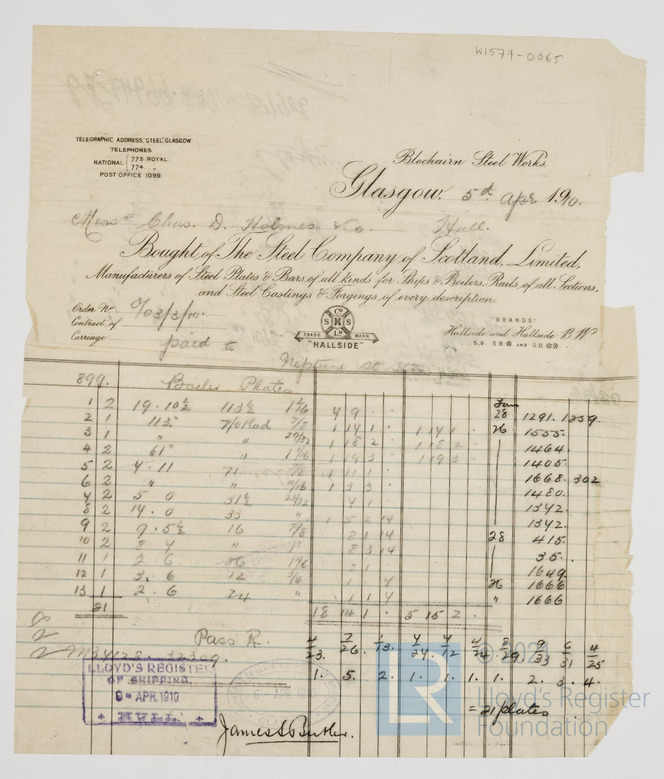 W1579-0065
TELEGRAPHIC ADDRESS, "STEEL" GLASGOW.
TELEPHONES
NATIONAL 775 ROYAL
774 "
POST OFFICE 1099
Blochairn Steel Works.
Glasgow. 5th Apr 1910.
Messrs Chas. D. Holmes & Co. Hull.
Bought of The Steel Company of Scotland, Limited,
Manufacturers of Steel Plates & Bars of all kinds for Ships & Boilers, Rails of all Sections,
and Steel Castings & Forgings of every description.
Order No. 0/03/3/10
Contract of
Carriage paid to Neptune St
TRADE MARK
S Co S Ld
"HALLSIDE"
"BRANDS"
Hallside and Hallside B.W.
S.B. SB AND SB
899. Boiler Plates
1 2 19.10½ 113½ 4 9 . . 28 1291.1259
2 1 113" 7/0 Rad 7/8 1 14 1 . 1 14 1 . 26 1555.
3 1 " " 29/32 1 18 2 . 1 18 2 . 1464.
4 2 61" " 1 19 3 . 1 19 3 . 1405.
5 2 4.11 71 7/8 1 11 1 . 1668.302
6 2 " " 1 3 3 . 1480.
7 2 5 0 31½ 29/32 4 1 . 1342.
8 2 14.0 33 " 1 5 2 14 1342.
9 2 9.5½ 16 7/8 8 1 14 28 415.
10 2 8 4 " " 8 3 14 35.
11 1 2.6 36 2 1 . 1649.
12 1 3.6 12 1 . 4 26 1666
13 1 2.6 24 " 1 1 4 " 1666
21 18 14 1 . 5 15 2 .
Pass R.
4/23. 7/26. 1/13. 4/24. 4/12 8/29. 9/33 6/31 4/25
1. 5. 2. 1. 1. 1. 1. 2. 3. 4.
= 21 plates
LLOYD'S REGISTER
OF SHIPPING.
9- APR. 1910
HULL
6- APR. 19
James S Butler.
LR
© 2021
Lloyd's Register
Foundation